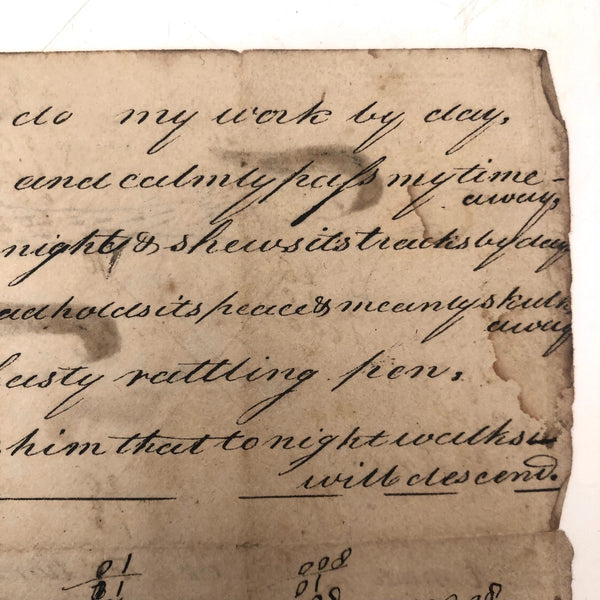 do my work by day,
and calmly paſs my time
away,
night & shews its tracks by day
holds its peace & meanly skulk
away
hasty rattling pen,
him that to night walks
will descend.